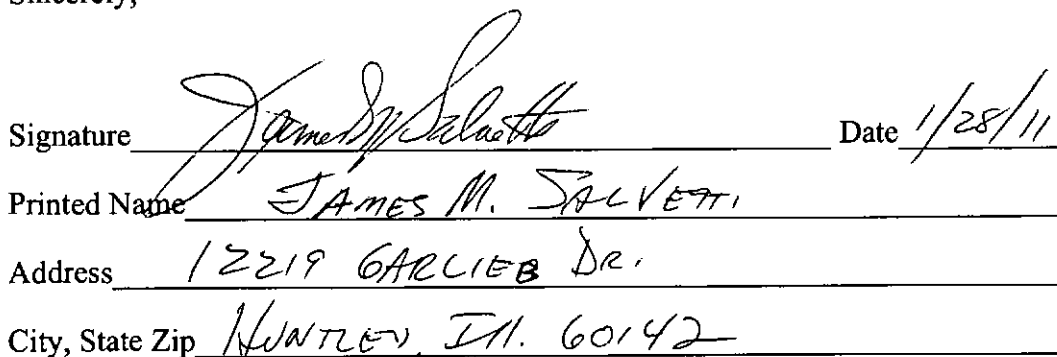 Sincerely,
Signature James M Salvetti Date 1/28/11
Printed Name JAMES M. SALVETTI
Address 12219 GARLIEB DR.
City, State Zip HUNTLEY, Ill. 60142